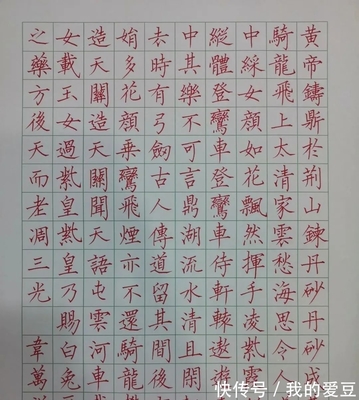 黃帝鑄鼎於荊山鍊丹砂丹砂成
騎龍飛上太清家雲愁海思令人
中綵女顏如花飄然揮手凌紫
縱體登鸞車登鸞車侍軒轅遨遊
中其樂不可言鼎湖流水清且
去時有弓劍古人傳道留其間後
娟多花顏乘鸞飛煙亦不還騎龍
造天關造天關聞天語屯雲河車
女載玉女過紫皇紫皇乃賜白兔
之藥方後天而老凋三光 韋萬
快传号 / 我的爱豆